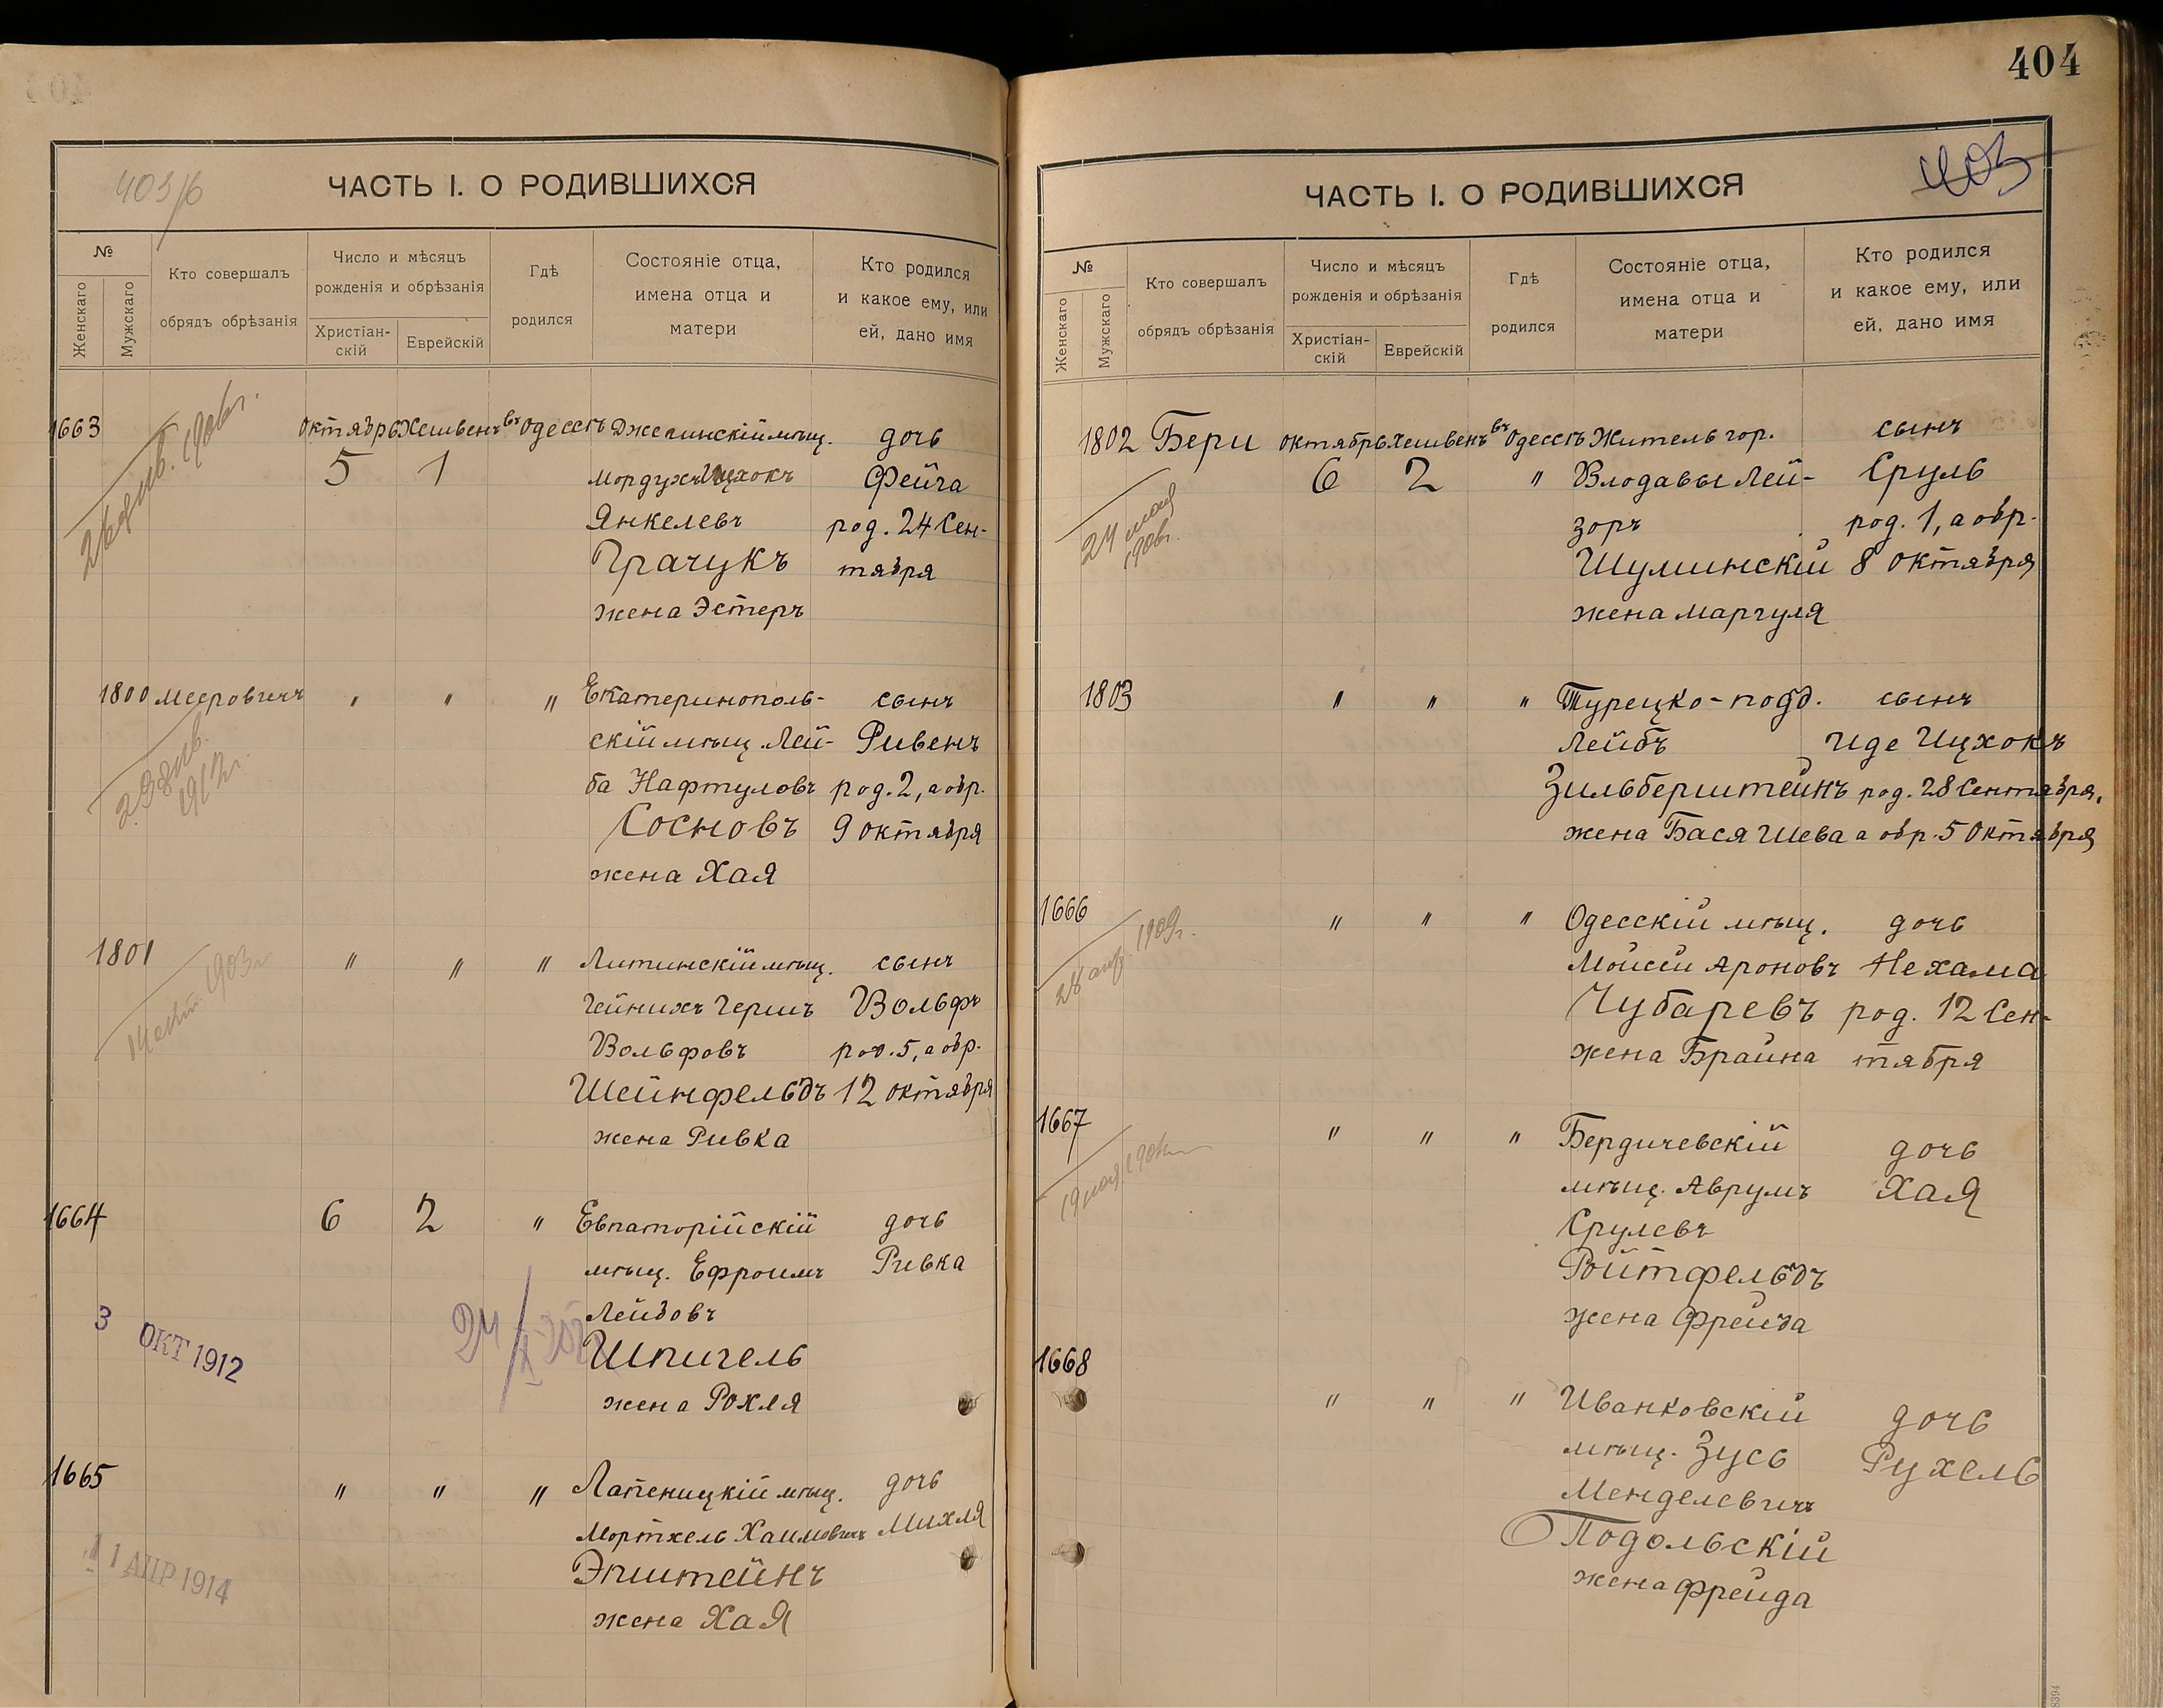 404
403/б
ЧАСТЬ I. О РОДИВШИХСЯ
№
Женскаго
Мужскаго
Кто совершалъ
обрядъ обрѣзанія
Число и мѣсяцъ
рожденія и обрѣзанія
Христіан-
скій
Еврейскій
Гдѣ
родился
Состояніе отца,
имена отца и
матери
Кто родился
и какое ему, или
ей, дано имя
1663 Октябрь Хешвенъ въ Одессѣ мѣщ. дочь
5 1 Мордухъ Ицхокъ Фейга
Янкелевъ род. 24 Сен-
Грачукъ тября
жена Эстеръ
1800 Мееровичъ " " " Екатеринополь- сынъ
скій мѣщ. Лей- Ривенъ
ба Нафтуловъ род. 2, а обр.
Сосновъ 9 октября
жена Хая
1801 " " " Литинскій мѣщ. сынъ
Гейнихъ Гершъ Вольфъ
Вольфовъ род. 5, а обр.
Шейнфельдъ 12 октября
жена Ривка
1664 6 2 " Евпаторійскій дочь
мѣщ. Ефроимъ Ривка
Лейбовъ
Шпигель
жена Рохля
3 ОКТ 1912
1665 " " " мѣщ. дочь
Мортхель Хаимовичъ Михля
Эпштейнъ
жена Хая
1 АПР 1914
403
ЧАСТЬ I. О РОДИВШИХСЯ
№
Женскаго
Мужскаго
Кто совершалъ
обрядъ обрѣзанія
Число и мѣсяцъ
рожденія и обрѣзанія
Христіан-
скій
Еврейскій
Гдѣ
родился
Состояніе отца,
имена отца и
матери
Кто родился
и какое ему, или
ей, дано имя
1802 Бери октябрь хешвенъ въ Одессѣ Житель гор. сынъ
6 2 " Влодавы Лей- Сруль
зоръ род. 1, а обр.
Шуминскій 8 октября
жена Маргуля
24 мая
1906г.
1803 " " " Турецко-подд. сынъ
Лейбъ Иде Ицхокъ
Зильберштейнъ род. 28 Сентября,
жена Бася Шева а обр. 5 Октября
1666 " " " Одесскій мѣщ. дочь
Мойсей Ароновъ Нехама
Чубаревъ род. 12 Сен-
жена Брайна тября
1667 " " " Бердичевскій дочь
мѣщ. Аврумъ Хая
Срулевъ
Ройтфельдъ
жена Фрейда
1668 " " " Иванковскій дочь
мѣщ. Зусь Рухель
Менделевичъ
Подольскій
жена Фрейда
8394